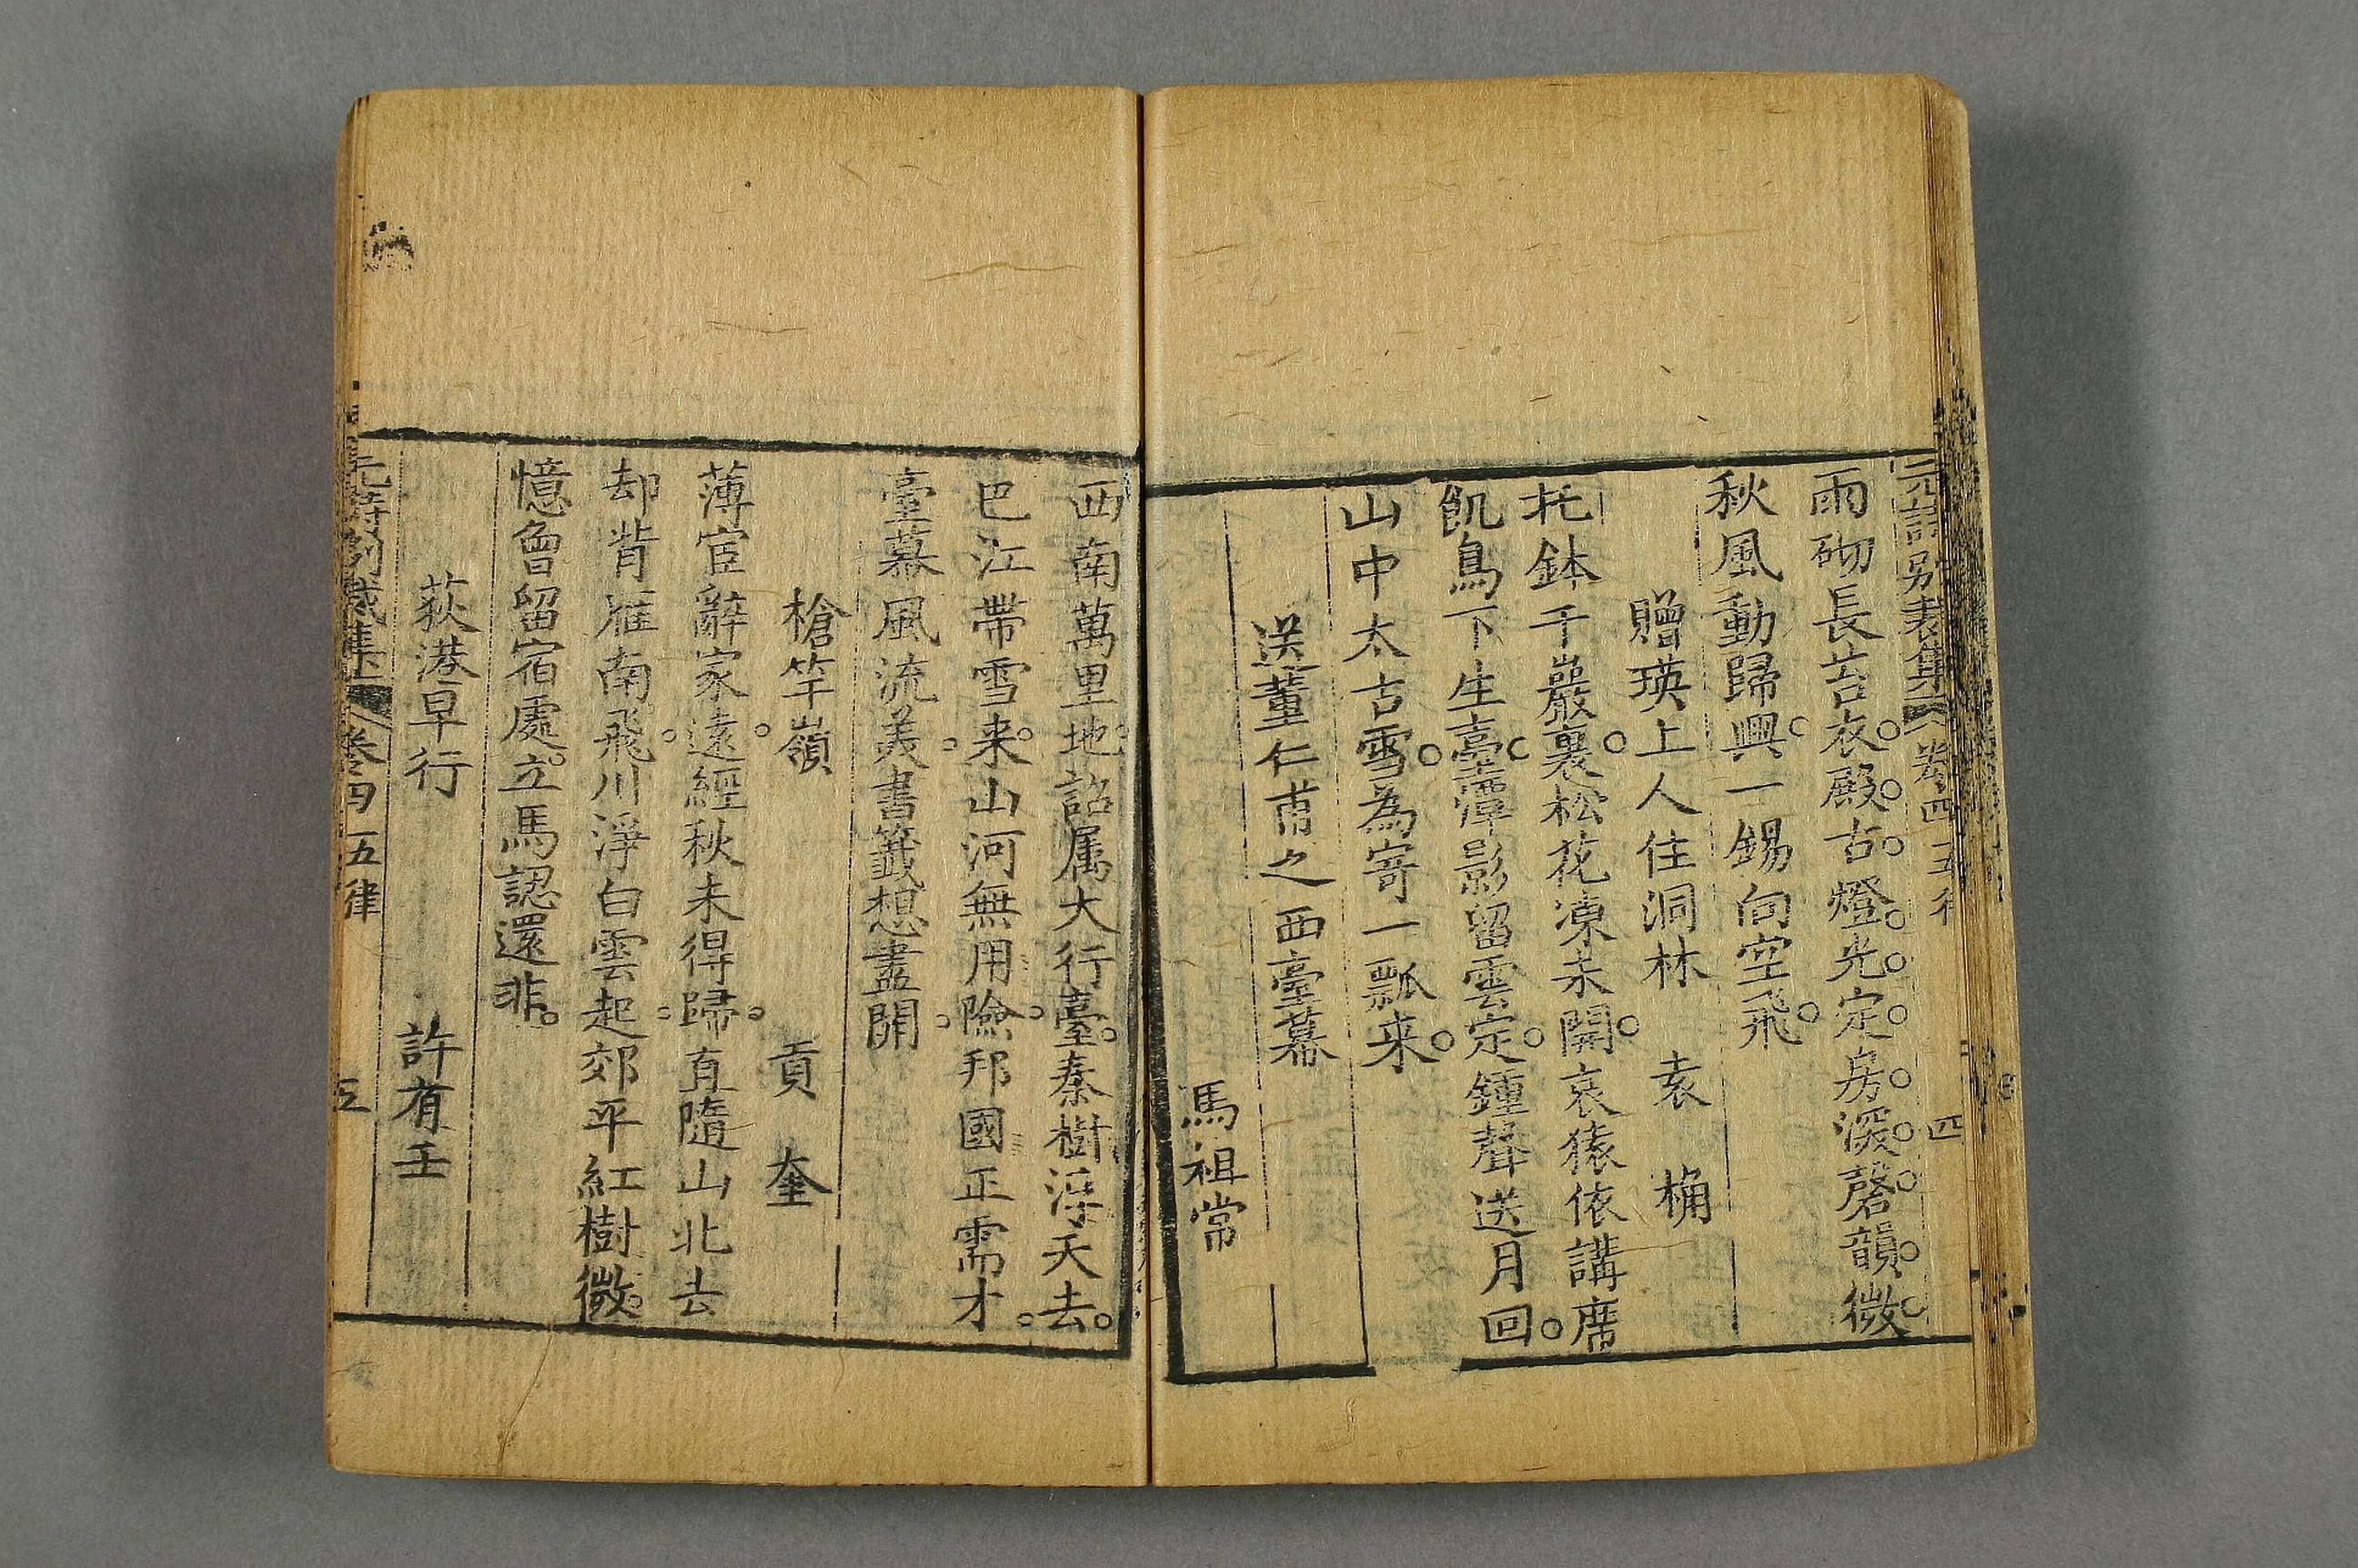 元詩別裁集 卷四 五律 四
雨砌長苔衣殿古燈光定房深磬韻微
秋風動歸興一錫向空飛
贈瑛上人住洞林 袁 桷
托鉢千巖裏松花凍未開哀猿依講席
飢鳥下生臺潭影留雲定鍾聲送月回
山中太古雪為寄一瓢来
送董仁甫之西臺幕
馬祖常
西南萬里地詔属大行臺秦樹浮天去
巴江帶雪来山河無用險邦國正需才
臺幕風流美書籤想盡開
槍竿嶺 貢 奎
薄宦辭家遠經秋未得歸直隨山北去
却背雁南飛川淨白雲起郊平紅樹微
憶曾留宿處立馬認還非
荻港早行 許有壬
元詩別裁集 卷四 五律 五